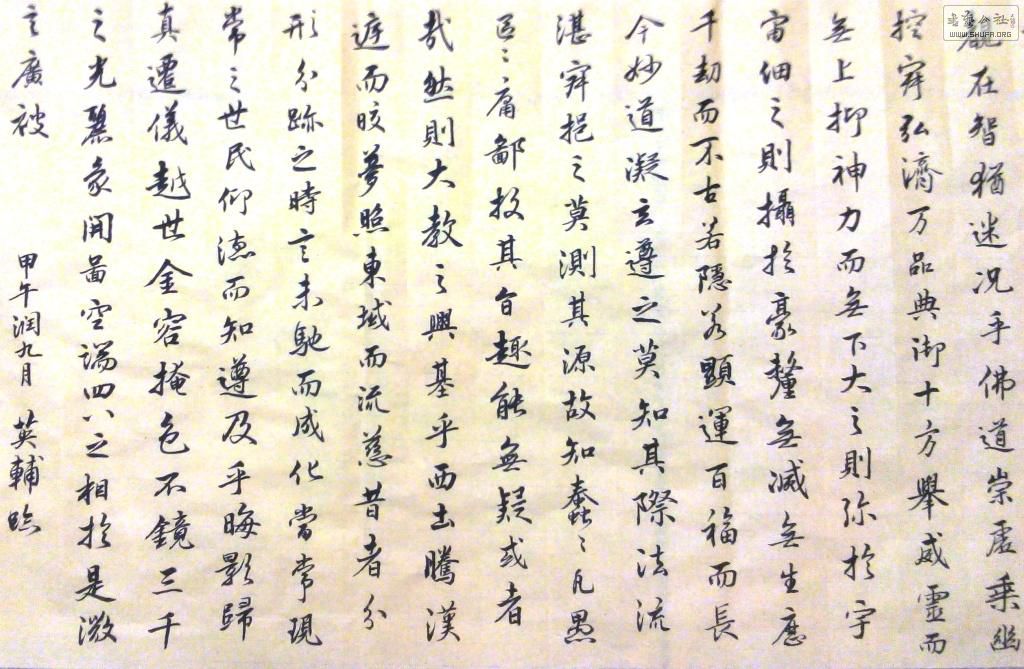 觀在智猶迷况乎佛道崇虛乘幽
控寂弘濟万品典御十方舉威靈而
無上抑神力而無下大之則弥於宇
宙細之則攝於豪釐無滅無生歷
千劫而不古若隱若顯運百福而長
今妙道凝玄遵之莫知其際法流
湛寂挹之莫測其源故知蠢々凡愚
區々庸鄙投其旨趣能無疑或者
哉然則大教之興基乎西土騰漢
庭而皎夢照東域而流慈昔者分
形分跡之時言未馳而成化當常現
常之世民仰德而知遵及乎晦影歸
真遷儀越世金容掩色不鏡三千
之光麗象開圖空端四八之相於是微
言廣被
甲午潤九月 英輔臨
WWW.SHUFA.ORG